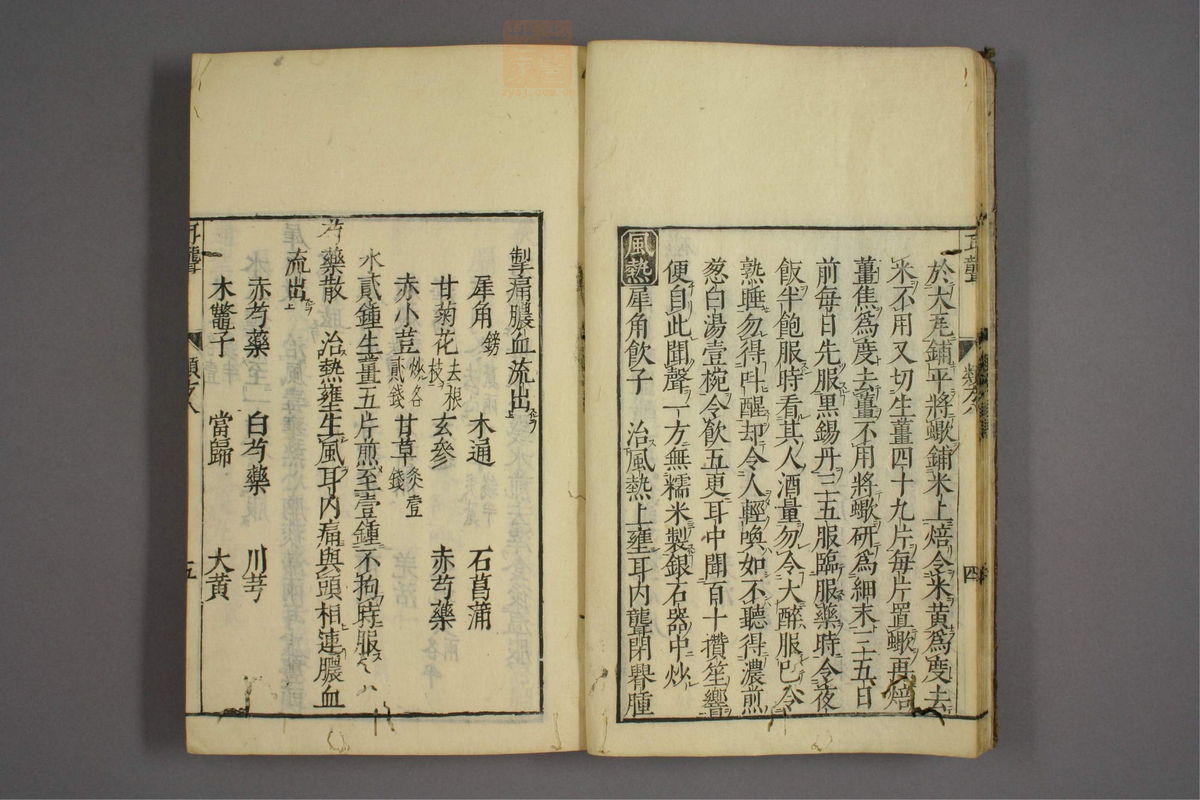 於大瓦鋪平將蠍鋪米上焙令米黃為度去
米不用又切生薑四十九片每片置蠍再焙
薑焦為度去薑不用將蠍研為細末三五日
前每日先服黑錫丹三五服臨服藥時令夜
飯半飽服時看其人酒量勿令大醉服已令
熟睡勿得呌醒却令人輕喚如不聽得濃煎
葱白湯壹椀令飲五更耳中聞百十攢笙響
便自此聞聲一方無糯米製銀石器中炒
風熱 犀角飲子 治風熱上壅耳內聾閉腫
掣痛膿血流出
犀角鎊 木通 石菖蒲
甘菊花去根枝 玄參 赤芍藥
赤小荳炒各貳錢 甘草炙壹錢
水貳鍾生薑五片煎至壹鍾不拘時服
芍藥散 治熱壅生風耳內痛與頭相連膿血
流出
赤芍藥 白芍藥 川芎
木鼈子 當歸 大黃
耳聾 類之八 五